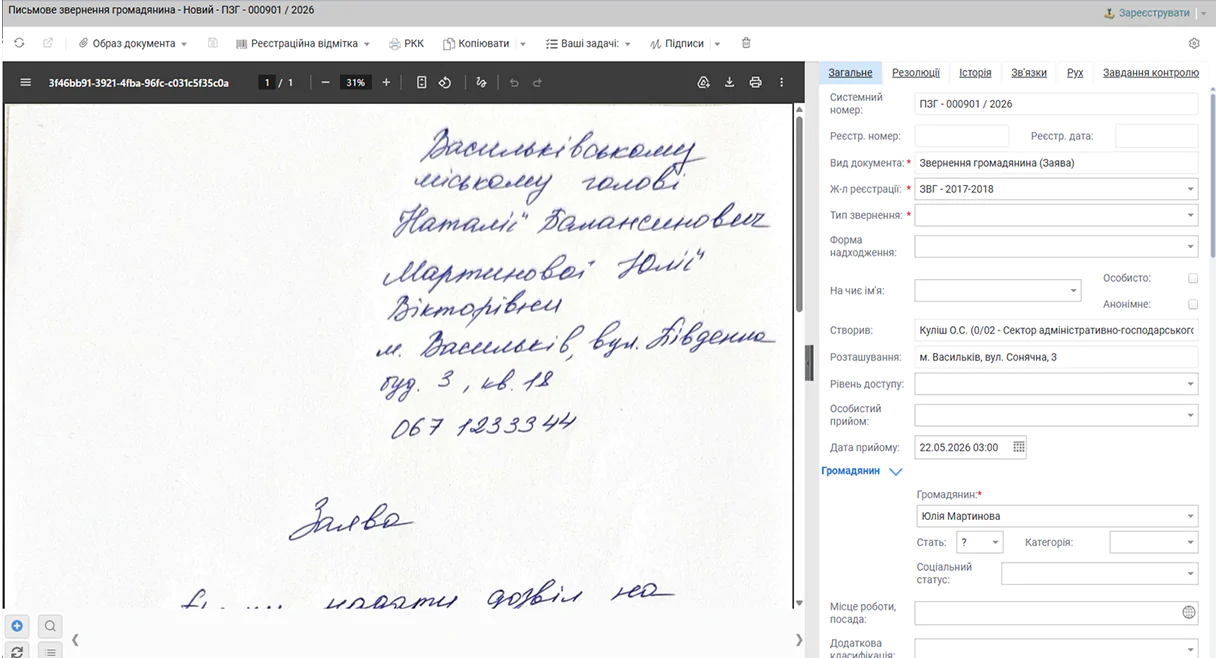 Письмове звернення громадянина - Новий - ПЗГ - 000901 / 2026
Зареєструвати
Образ документа
Реєстраційна відмітка
РКК
Копіювати
Ваші задачі:
Підписи
3f46bb91-3921-4fba-96fc-c031c5f35c0a
1 / 1
31%
Васильківському
міському голові
Наталії Баласинович
Мартинової Юлії
Вікторівни
м. Васильків, вул. Південна
буд. 3, кв. 18
067 1233344
Заява
надати дозвіл на
Загальне Резолюції Історія Зв'язки Рух Завдання контролю
Системний номер: ПЗГ - 000901 / 2026
Реєстр. номер: Реєстр. дата:
Вид документа:* Звернення громадянина (Заява)
Ж-л реєстрації: * ЗВГ - 2017-2018
Тип звернення: *
Форма
надходження:
Особисто:
На чиє ім'я:
Анонімне:
Створив: Куліш О.С. (0/02 - Сектор адміністративно-господарського
Розташування: м. Васильків, вул. Сонячна, 3
Рівень доступу:
Особистий
прийом:
Дата прийому: 22.05.2026 03:00
Громадянин
Громадянин:*
Юлія Мартинова
Стать: ? Категорія:
Соціальний
статус:
Місце роботи,
посада:
Додаткова
класифікація: